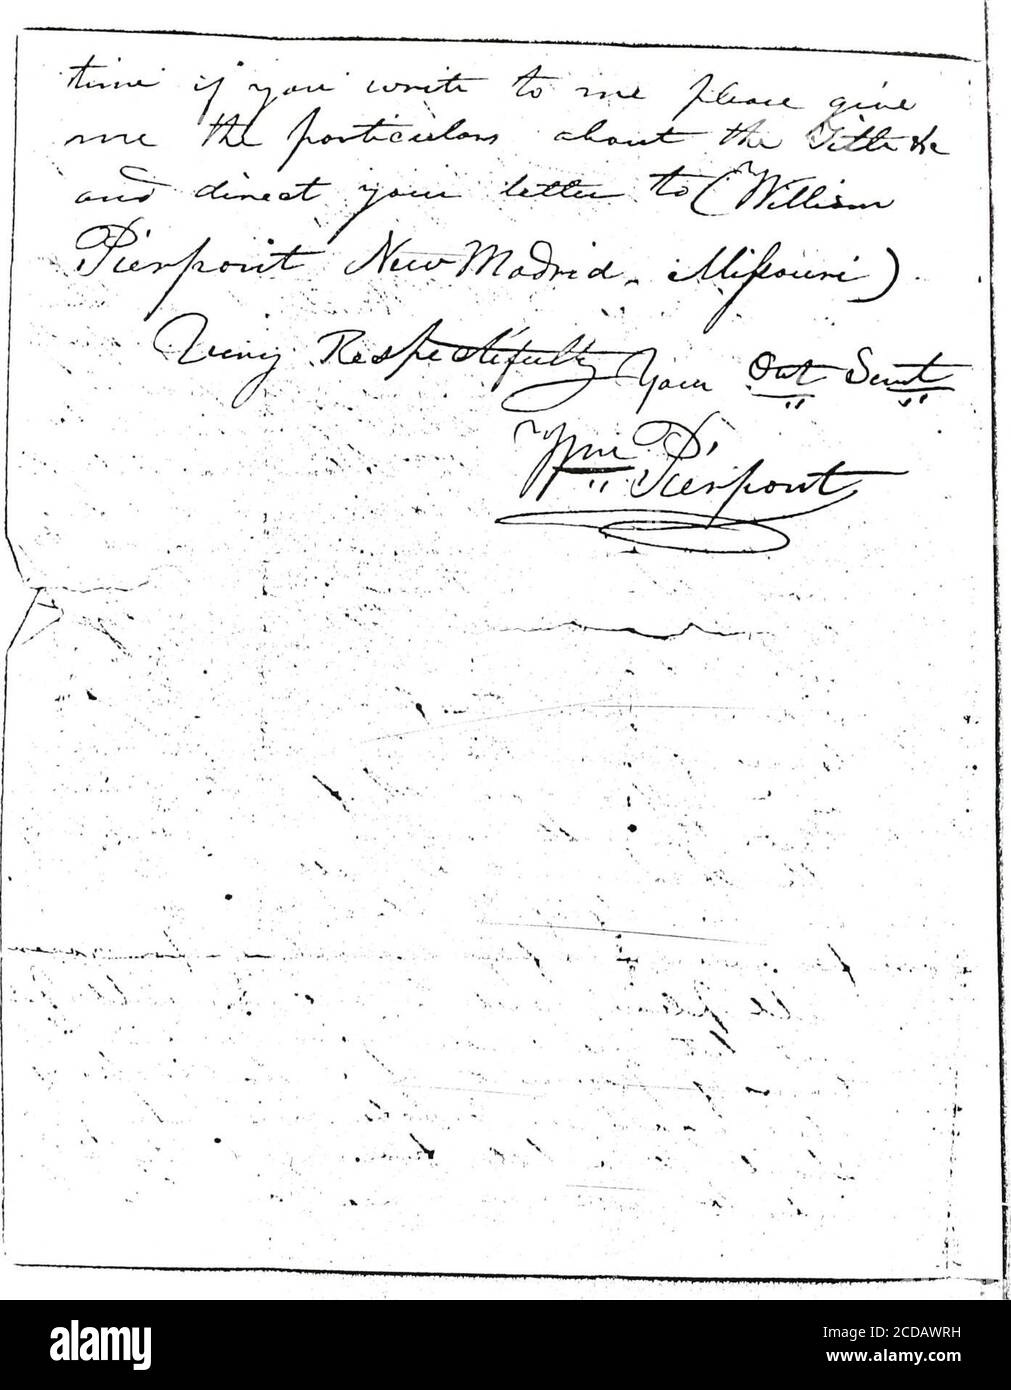 time if you write to me please give
me the particulars about the Title &c
and direct your letter to (William
Pierpont New Madrid, Missouri)
Very Respectfully Your Obt Servt
Wm Pierpont
alamy
Image ID: 2CDAWRH
www.alamy.com